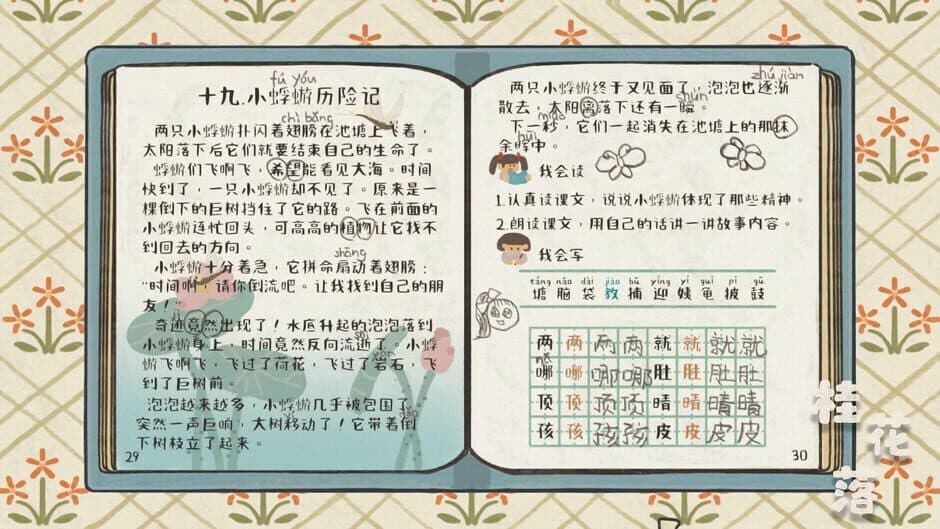 fú yóu
十九.小蜉蝣历险记
chì bǎng
两只小蜉蝣扑闪着翅膀在池塘上飞着，
太阳落下后它们就要结束自己的生命了。
蜉蝣们飞啊飞，希望能看见大海。时间
快到了，一只小蜉蝣却不见了。原来是一
棵倒下的巨树挡住了它的路。飞在前面的
小蜉蝣连忙回头，可高高的植物让它找不
到回去的方向。
shāng
小蜉蝣十分着急，它拼命扇动着翅膀：
"时间啊，请你倒流吧。让我找到自己的朋
友！"
奇迹竟然出现了！水底升起的泡泡落到
小蜉蝣身上，时间竟然反向流逝了。小蜉
蝣飞啊飞，飞过了荷花，飞过了岩石，飞
到了巨树前。
泡泡越来越多，小蜉蝣几乎被包围了。
突然一声巨响，大树移动了！它带着倒
下树枝立了起来。
29
zhú jiàn
两只小蜉蝣终于又见面了，泡泡也逐渐
shùn
散去，太阳离落下还有一瞬。
miǎo
下一秒，它们一起消失在池塘上的那抹
余晖中。
我会读
1.认真读课文，说说小蜉蝣体现了那些精神。
2.朗读课文，用自己的话讲一讲故事内容。
我会写
táng nǎo dài jiāo bǔ yíng yí guī pī gǔ
塘 脑 袋 教 捕 迎 姨 龟 披 鼓
两 两 两 两 就 就 就 就
nǎ
哪 哪 哪 哪 肚 肚 肚 肚
顶 顶 顶 顶 晴 晴 晴 晴
孩 孩 孩 孩 皮 皮 皮 皮
30
桂花落